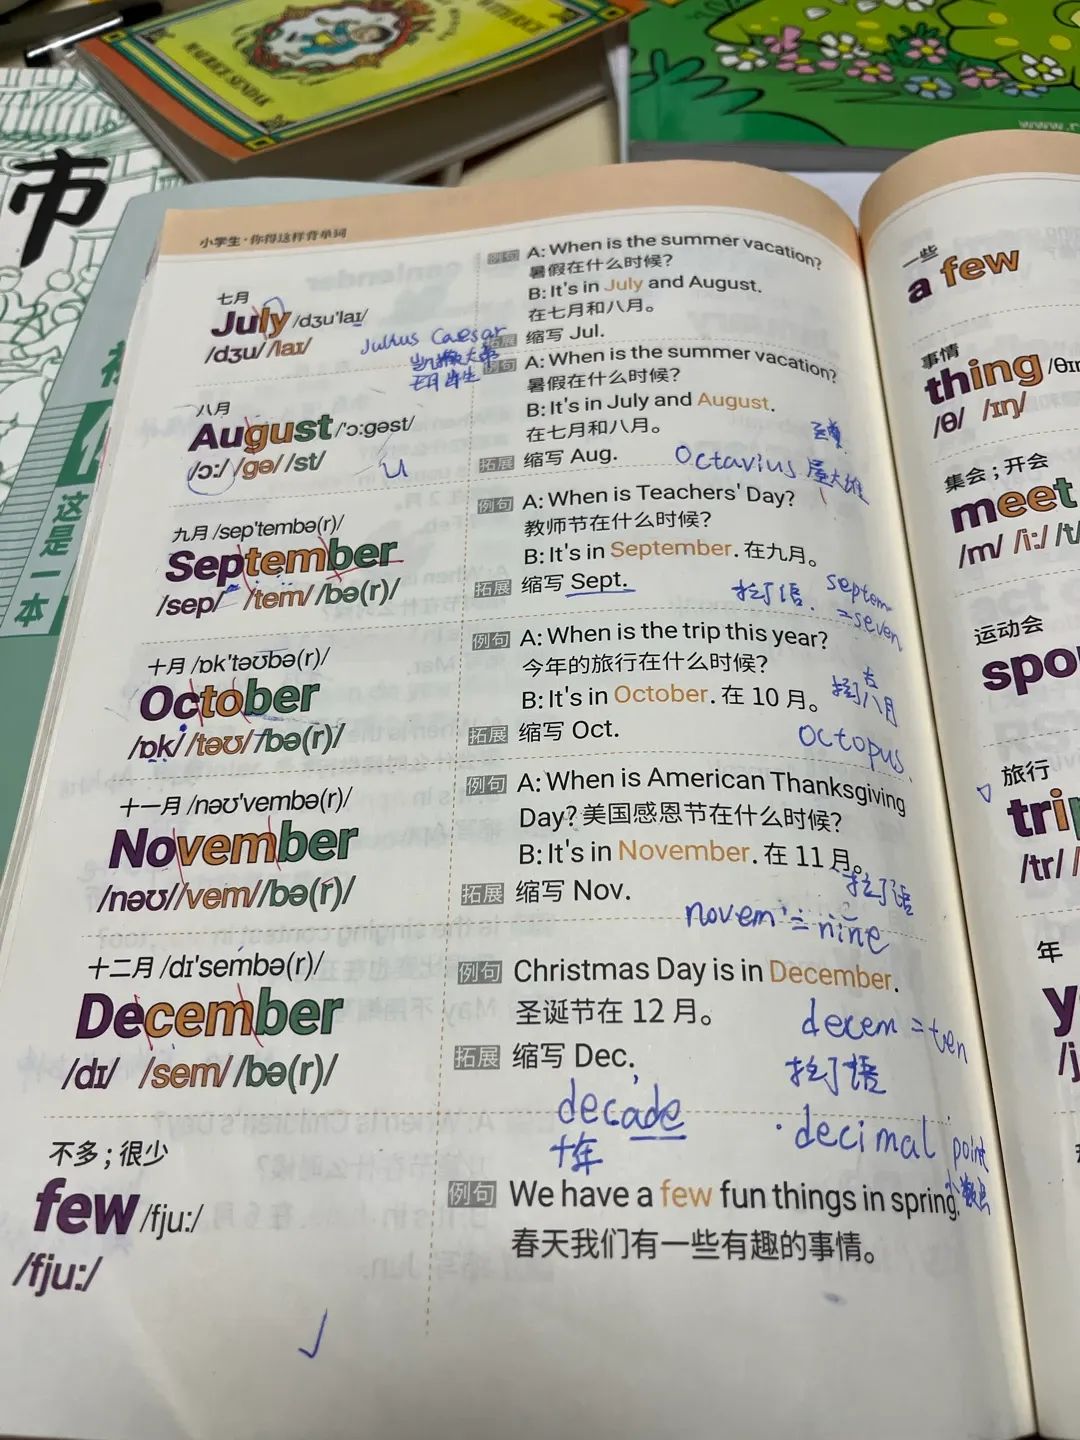 市
这是一本
小学生·你得这样背单词
七月
July /dʒu'laɪ/
/dʒu/ /laɪ/
Julius Caesar
例句 A: When is the summer vacation?
暑假在什么时候?
B: It's in July and August.
在七月和八月。
拓展 缩写 Jul.
八月
August /'ɔ:gəst/
/ɔ:/ /gə/ /st/
u
例句 A: When is the summer vacation?
暑假在什么时候?
B: It's in July and August.
在七月和八月。
拓展 缩写 Aug.
Octavius 屋大维
九月 /sep'tembə(r)/
September
/sep/ /tem/ /bə(r)/
例句 A: When is Teachers' Day?
教师节在什么时候?
B: It's in September. 在九月。
拓展 缩写 Sept.
septem
=seven
十月 /ɒk'təʊbə(r)/
October
/ɒk/ /təʊ/ /bə(r)/
例句 A: When is the trip this year?
今年的旅行在什么时候?
B: It's in October. 在 10 月。
拓展 缩写 Oct.
八月
octopus
十一月 /nəʊ'vembə(r)/
November
/nəʊ/ /vem/ /bə(r)/
例句 A: When is American Thanksgiving
Day? 美国感恩节在什么时候?
B: It's in November. 在 11 月。
拓展 缩写 Nov.
拉丁语
novem = nine
十二月 /dɪ'sembə(r)/
December
/dɪ/ /sem/ /bə(r)/
例句 Christmas Day is in December.
圣诞节在 12 月。
拓展 缩写 Dec.
decem = ten
拉丁语
decade
十年
decimal point
小数点
不多；很少
few /fju:/
/fju:/
例句 We have a few fun things in spring.
春天我们有一些有趣的事情。
一些
a few
事情
thing
/θ/ /ɪŋ/
集会；开会
meet
/m/ /i:/ /t/
运动会
旅行
/tr/
年